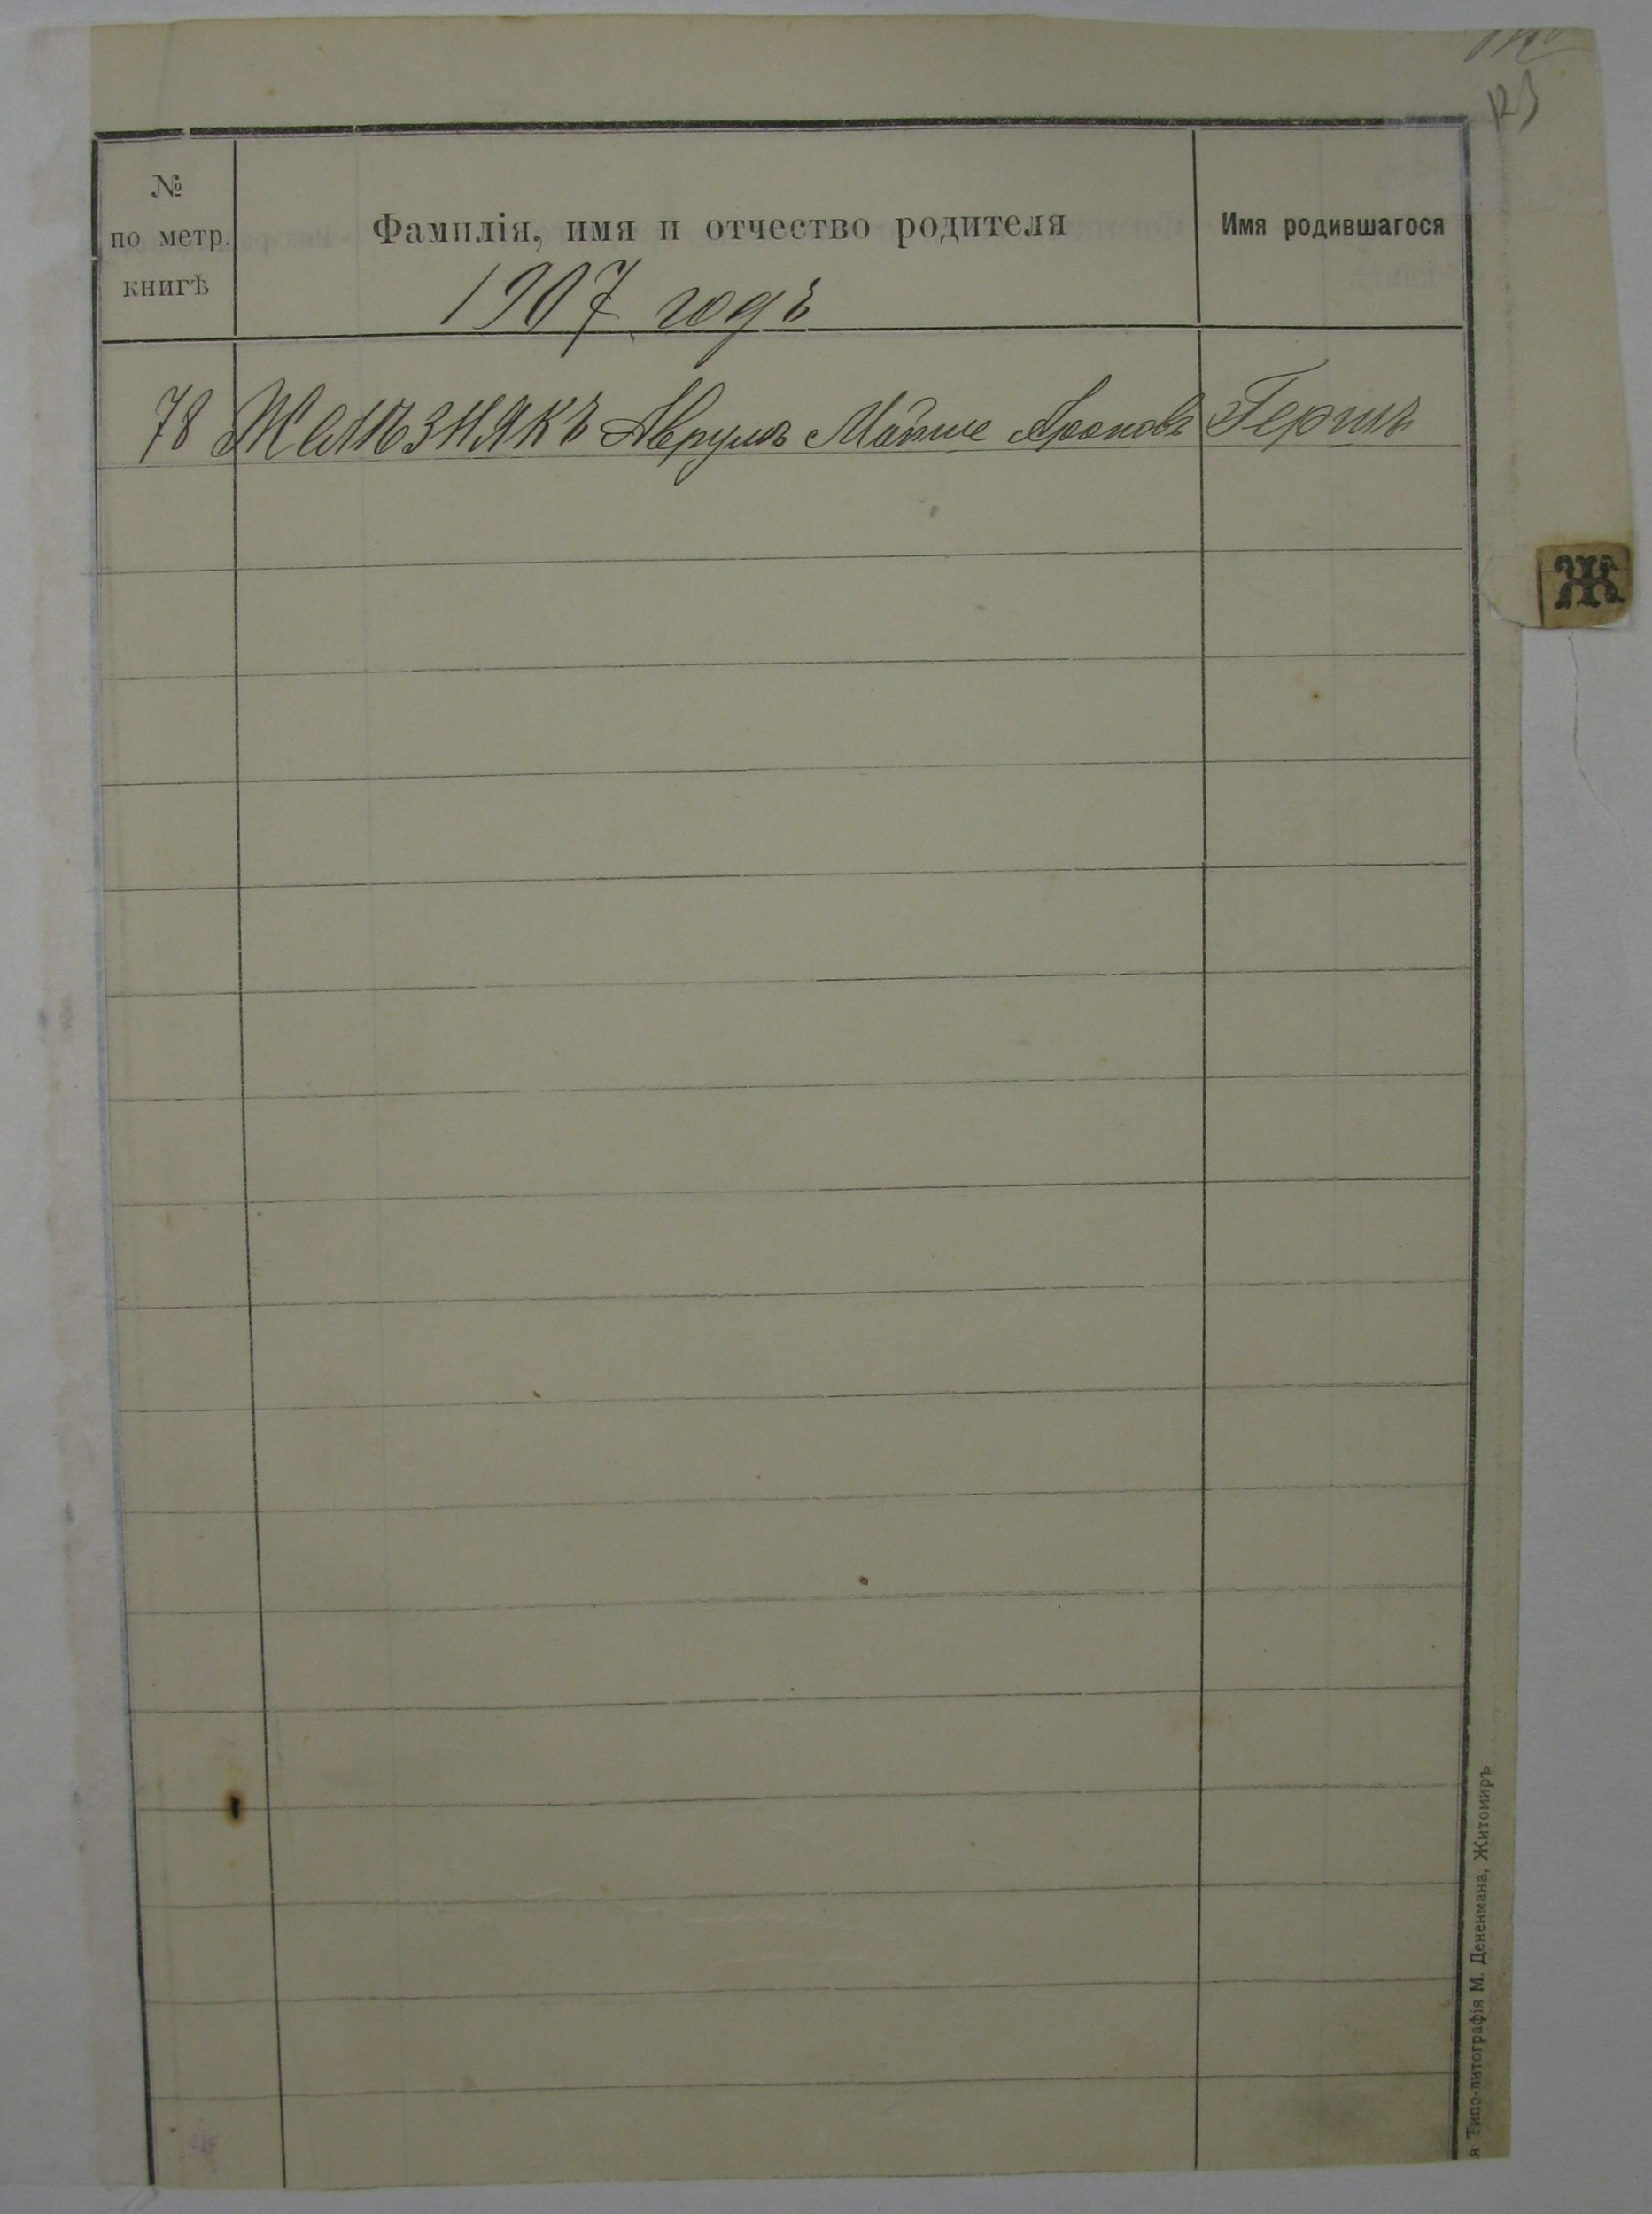 123
№
по метр.
книгѣ
Фамилія, имя и отчество родителя
Имя родившагося
1907 годъ
78 Желѣзнякъ Аврумъ Мойше Ароновъ Гершъ
Ж
я Типо-литографія М. Дененмана, Житомиръ